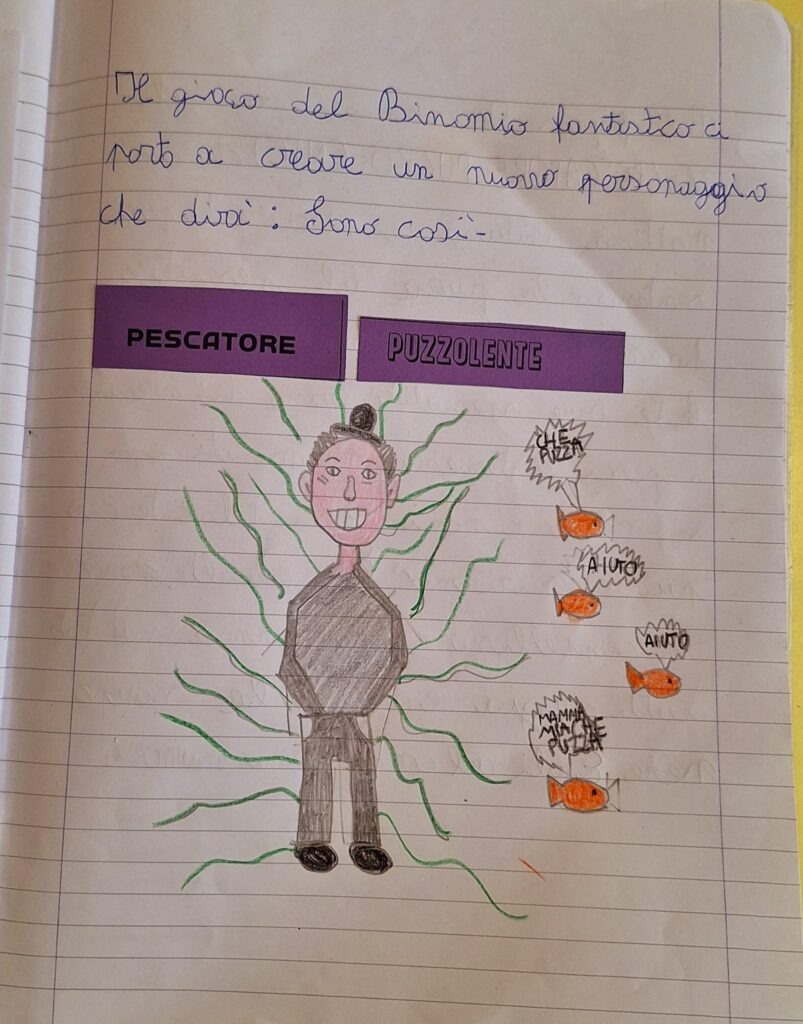 Il gioco del Binomio fantastco ci
porta a creare un nuovo personaggio
che dirà: Sono così-
PESCATORE
PUZZOLENTE
CHE
PUZZA
AIUTO
AIUTO
MAMMA
MIA CHE
PUZZA